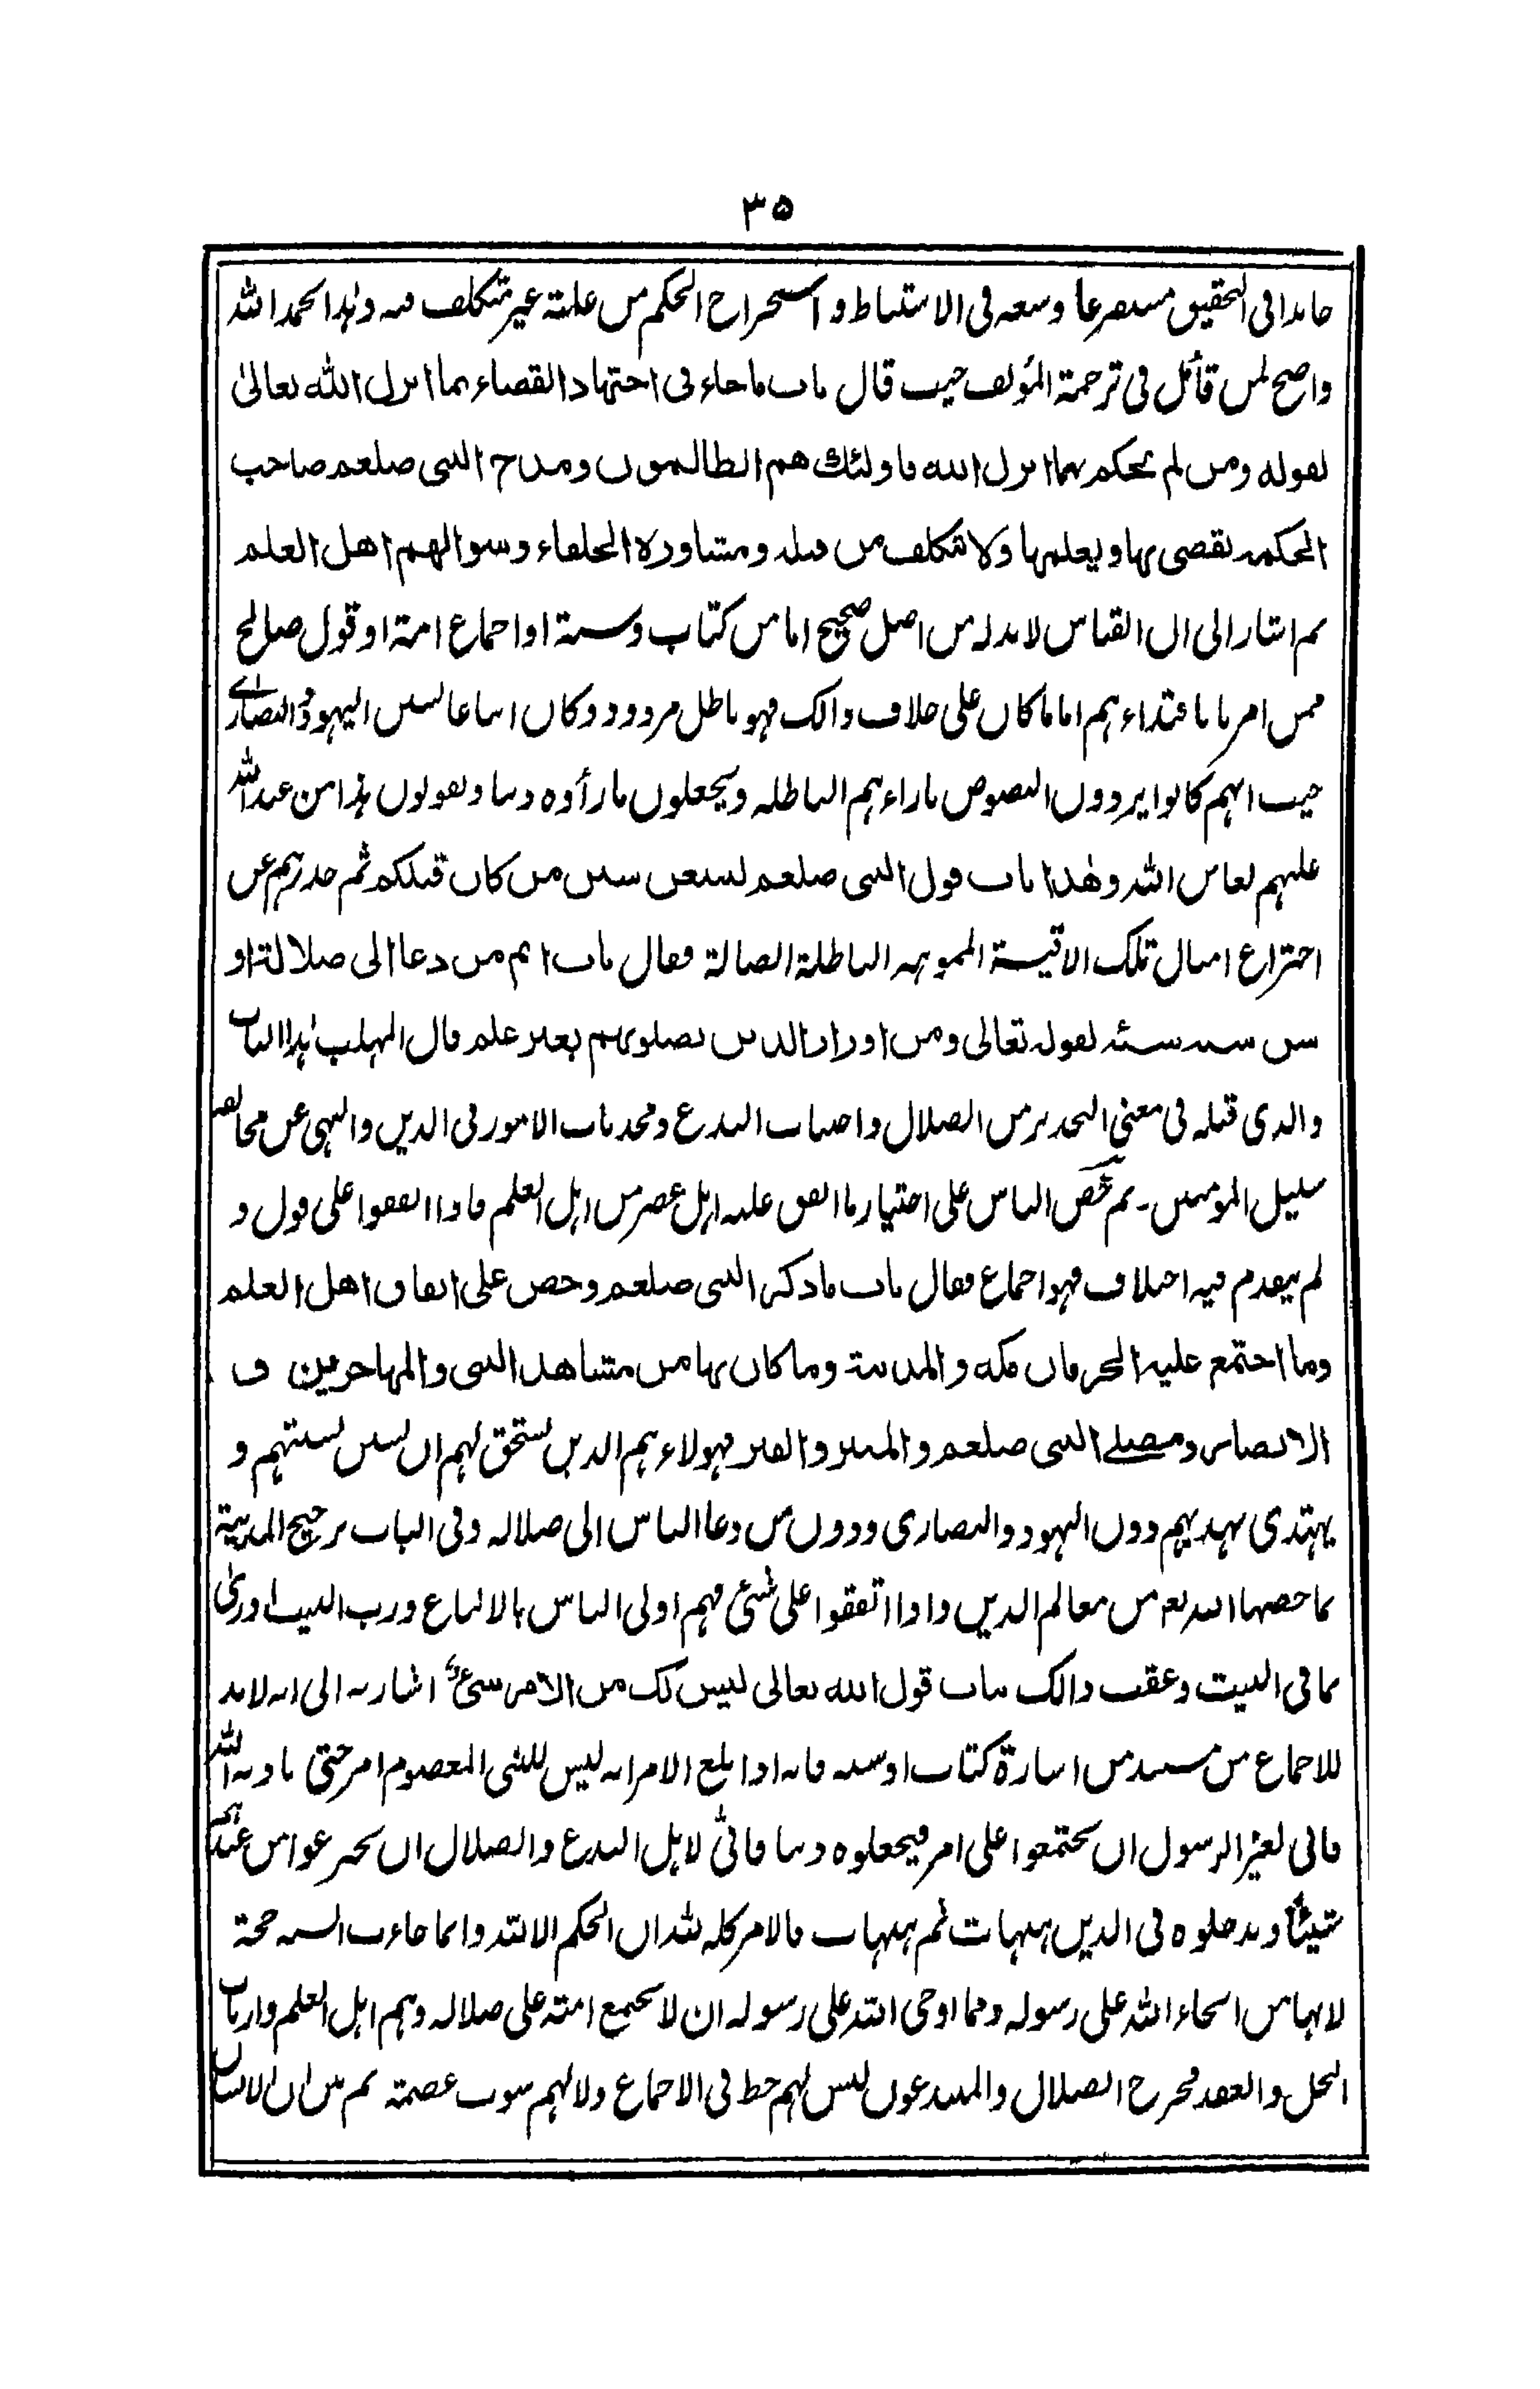 ٣٥
جاهدا فى التحقيق مستفرغا وسعه فى الاستنباط و استخراج الحكم من علته غير متكلف فيه وهذا بحمد الله
واضح لمن تأمل فى ترجمة المؤلف حيث قال باب ماجاء فى اجتهاد القضاء بما انزل الله تعالىٰ
لقوله ومن لم يحكم بما انزل الله فاولئك هم الظالمون ومدح النبى صلعم صاحب
الحكمة يقضى بها ويعلمها ولا تكلف من قبله ومشاورة الخلفاء وسوالهم اهل العلم
ثم اشار الى ان القياس لابد له من اصل صحيح اما من كتاب وسنة او اجماع امة او قول صالح
ممن امرنا باقتداءهم اما ما كان على خلاف ذالك فهو باطل مردود وكان اتباعا لسنن اليهود والنصارى
حيث انهم كانوا يردون النصوص باراءهم الباطله ويجعلون ما رأوه دينا ويقولون هذا من عند الله
عليهم لعاين الله وهذا باب قول النبى صلعم لتتبعن سنن من كان قبلكم ثم حذرهم عن
اختراع امثال تلك الاقيسة المموهه الباطلة الضالة فقال باب اثم من دعا الى ضلالة او
سن سنة سيئة لقوله تعالى ومن اوزار الذين يضلونهم بغير علم قال المهلب هذا الباب
والذى قبله فى معنى التحذير من الضلال واجتناب البدع ومحدثات الامور فى الدين والنهى عن مخالفة
سبيل المومنين۔ ثم حض الناس على اختيار ما اتفق عليه اهل عصر من اهل العلم فاذا اتفقوا على قول و
لم يتقدم فيه اختلاف فهو اجماع فقال باب ماذكر النبى صلعم وحض على اتفاق اهل العلم
وما اجتمع عليه الحرمان مكه والمدينة وما كان بها من مشاهد النبى والمهاجرين و
الانصار ومصلے النبى صلعم والمنبر والقبر فهولاء هم الذين يستحق لهم ان يستن بسنتهم و
يهتدى بهديهم دون اليهود والنصارى ودون من دعا الناس الى ضلاله وفى الباب ترجيح المدينة
بما خصها الله به من معالم الدين واذا اتفقوا على شئ فهم اولى الناس بالاتباع ورب البيت ادرى
بما فى البيت وعقب ذالك بباب قول الله تعالى ليس لك من الامر شئ اشار به الى انه لابد
للاجماع من مستند من اشارة كتاب او سنة فانه اذا بلغ الامر انه ليس للنبى المعصوم امر حتى ياذنه الله
فانى لغير الرسول ان يجتمعوا على امر فيجعلوه دينا فانىٰ لاهل البدع والضلال ان يخترعوا من عندهم
شيئا ويدخلوه فى الدين هيهات ثم هيهات فالامر كله لله ان الحكم الا لله وانما جاءت السنة حجة
لانها من ايحاء الله على رسوله ومما اوحى الله على رسوله ان لا تجتمع امته على ضلاله وهم اهل العلم وارباب
الحل والعقد فخرج الضلال والمبتدعون ليس لهم حظ فى الاجماع ولا لهم ثوب عصمته ثم بين ان الانسان